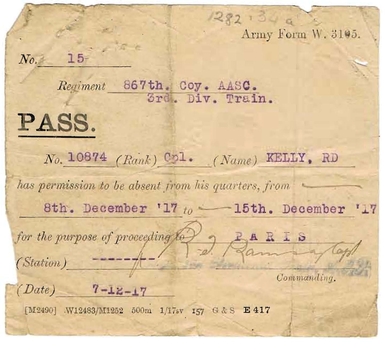 1282·34a
Army Form W. 3105.
No. 15
Regiment 867th. Coy. AASC.
3rd. Div. Train.
PASS.
No. 10874 (Rank) Cpl. (Name) KELLY, RD
has permission to be absent from his quarters, from
8th. December '17 to 15th. December '17
for the purpose of proceeding to PARIS
(Station) -------
Commanding.
(Date) 7-12-17
[M2490] W12483/M1252 500m 1/17sv 157 G & S E 417